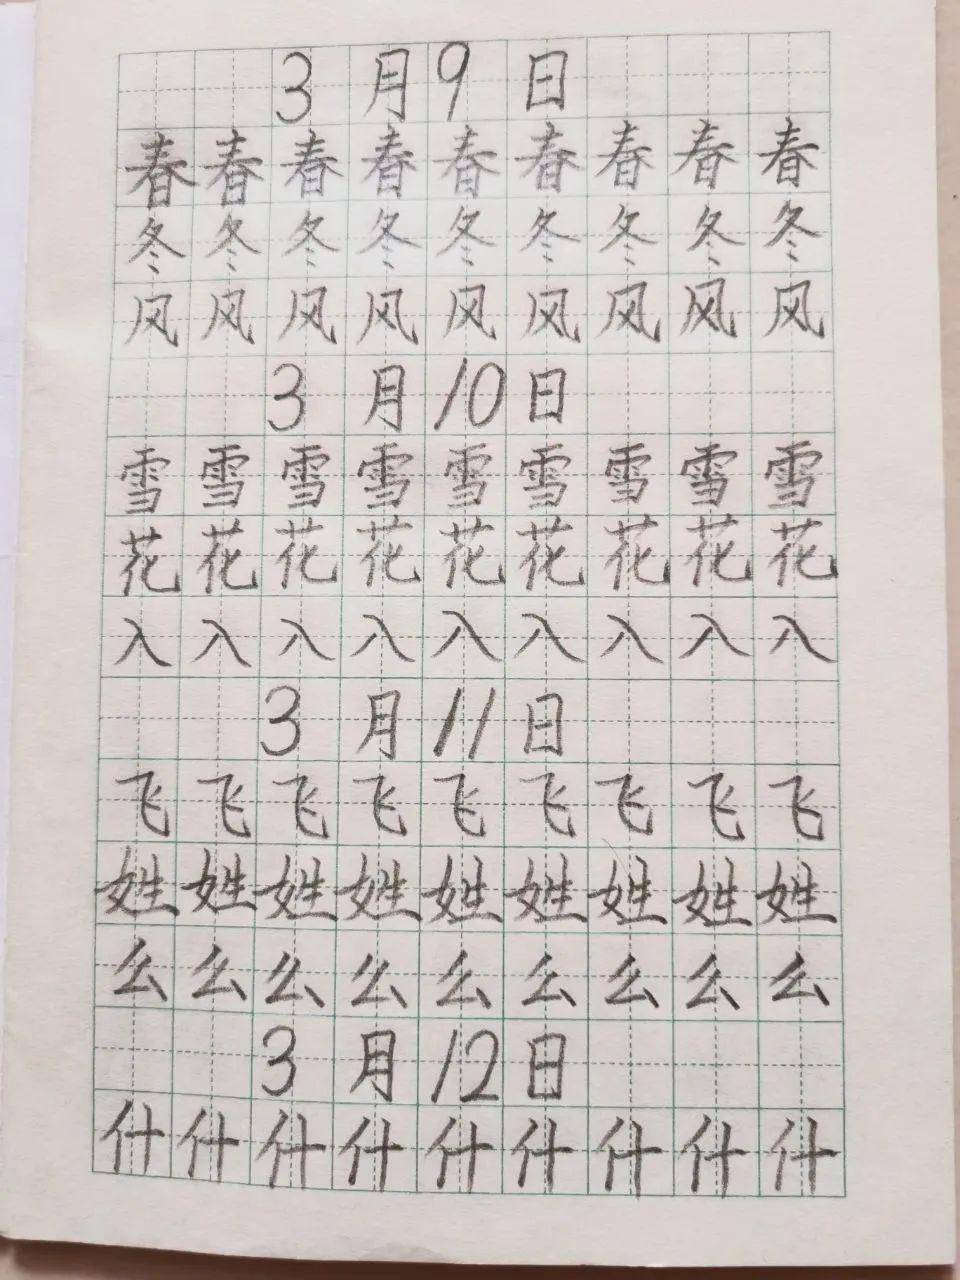 3月9日
春春春春春春春春春
冬冬冬冬冬冬冬冬冬
风风风风风风风风风
3月10日
雪雪雪雪雪雪雪雪雪
花花花花花花花花花
入入入入入入入入入
3月11日
飞飞飞飞飞飞飞飞飞
姓姓姓姓姓姓姓姓姓
么么么么么么么么么
3月12日
什什什什什什什什什